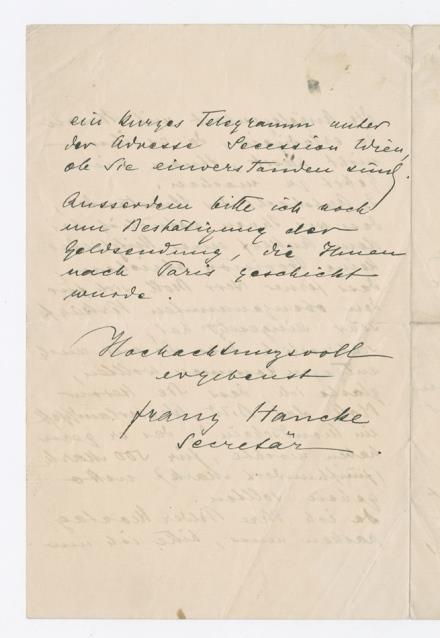 ein kurzes Telegramm unter
der Adresse Secession Wien,
ob Sie einverstanden sind.
Ausserdem bitte ich noch
um Bestätigung der
Geldsendung, die Ihnen
nach Paris geschickt
wurde.
Hochachtungsvoll
ergebenst
Franz Hancke
Secretär.